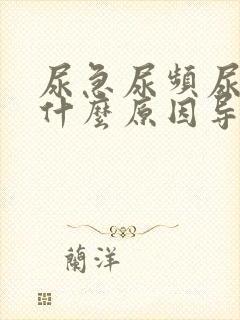 尿急尿頻尿
什麼原因导
蘭洋